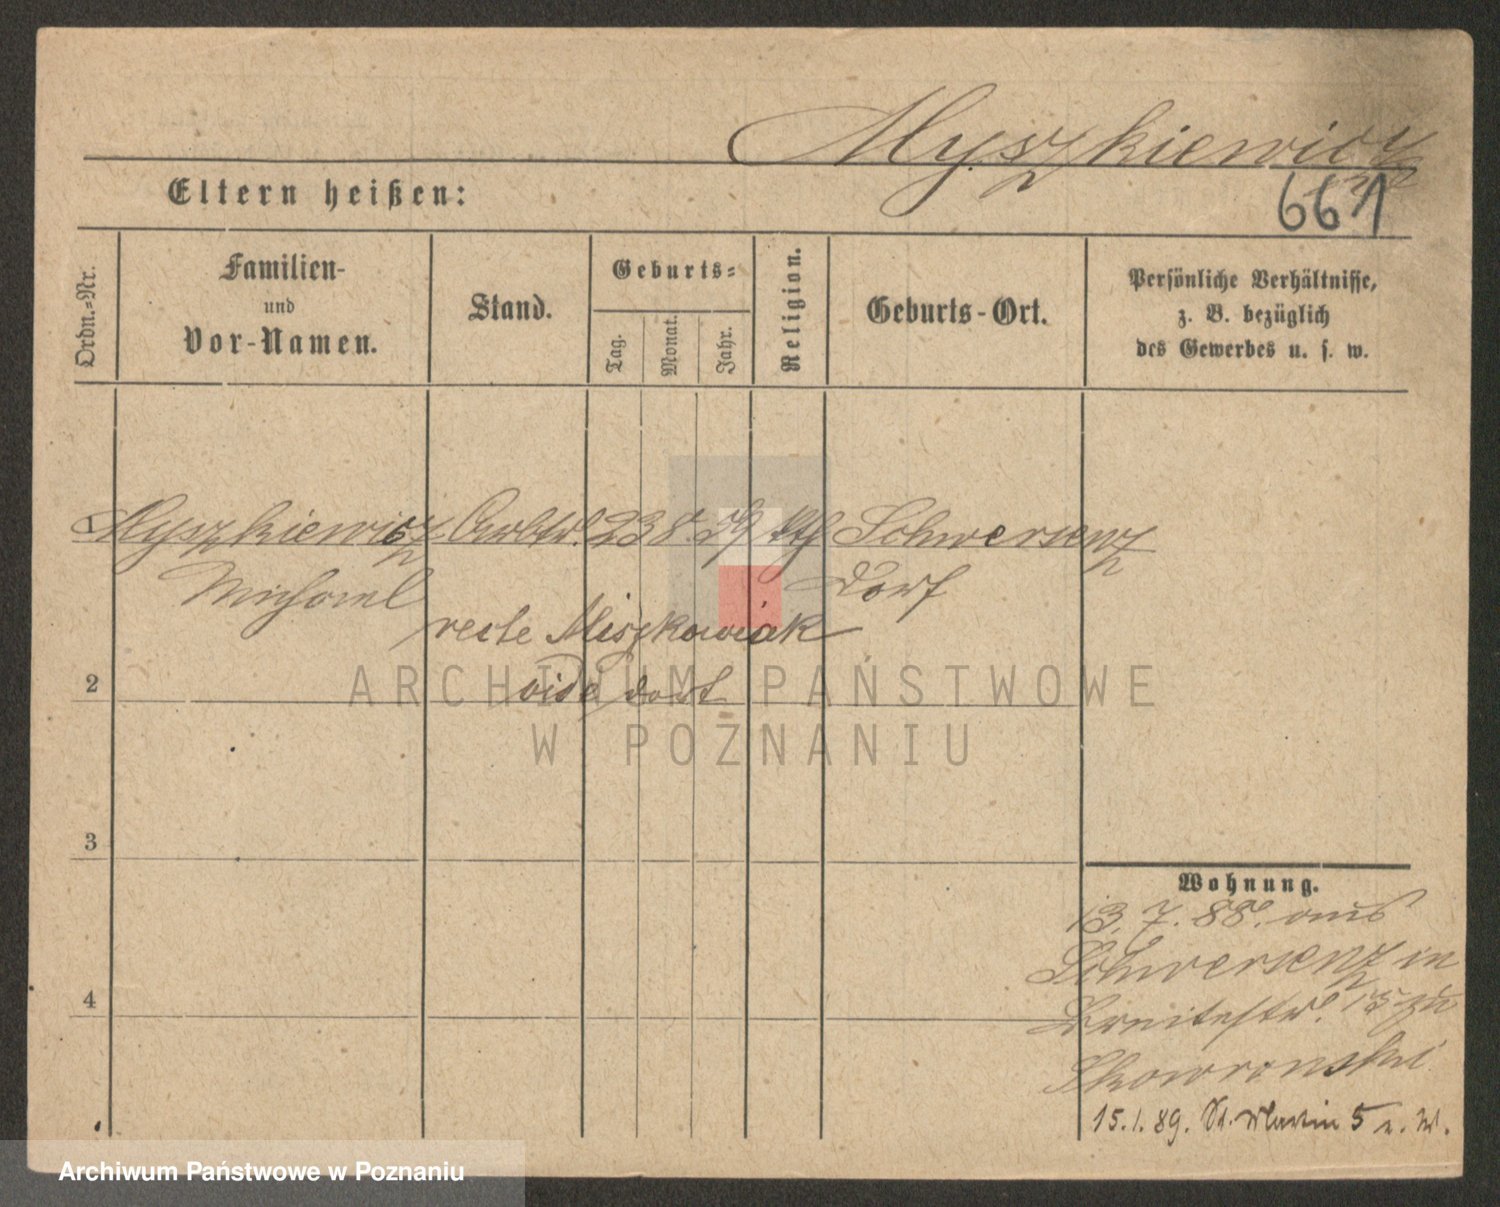 Myszkiewicz
Eltern heißen:
661
Ordn.-Nr.
Familien-
und
Vor-Namen.
Stand.
Geburts-
Tag.
Monat.
Jahr.
Religion.
Geburts-Ort.
Persönliche Verhältnisse,
z. B. bezüglich
des Gewerbes u. s. w.
1 Myszkiewicz Arbtr. 23 8. 59 kth Schwersenz
Michael Dorf
recte Miszkowiak
vide dort
2
ARCHIWUM PAŃSTWOWE
W POZNANIU
3
4
Wohnung.
13. 7. 88. aus
Schwersenz in
Breitestr. 15 zu
Skowronski.
15.1.89. St. Martin 5
Archiwum Państwowe w Poznaniu